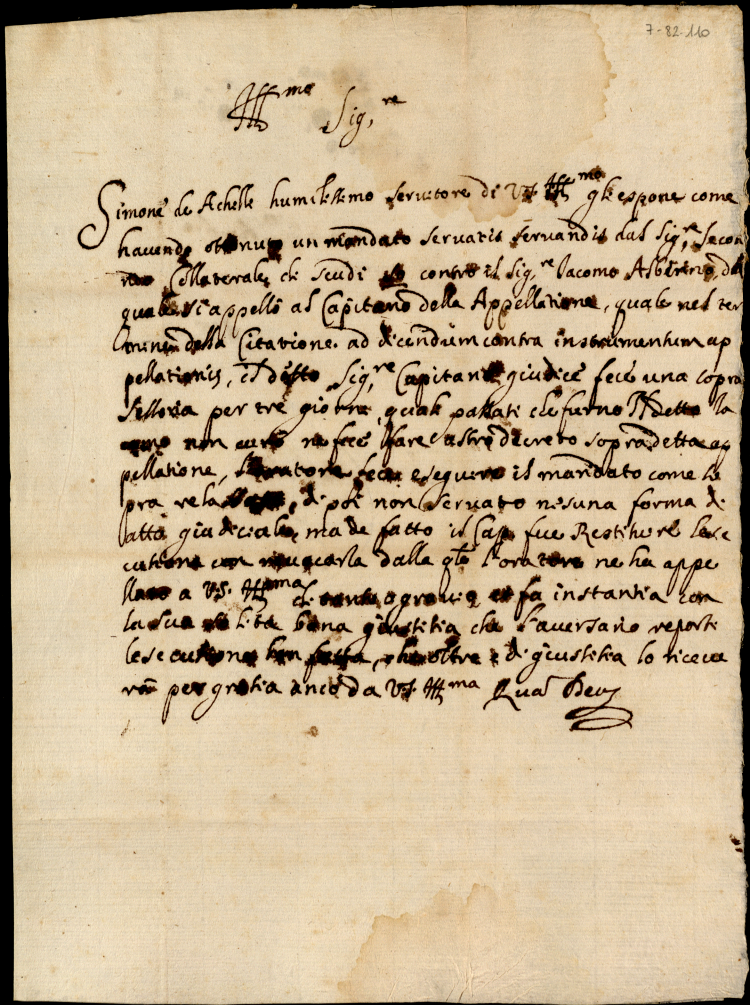 7-82-110
Ill.mo Sig.re
Simone de Achelle humilissimo servitore di V.S. Ill.ma gli espone come
havendo ottenuto un mandato servatis servandis dal Sig.re Secon
Collaterale di scudi contro il Sig.re Iacomo
quale si appellò al Capitano della Appellatione, quale nel ter
mine della Citatione ad dicendum contra instrumentum ap
pellationis, il ditto Sig.re Capitan giudice fece una sopra
per tre giorni quali passati che furno
non fece fare altro decreto sopra detta ap
pellatione, l'oratore fece eseguire il mandato come so
pra di poi non servato nesuna forma di
atti giudiciali ma de fatto il Cap fece Restituire lese
cutione con revocarla dalla qle l'oratore ne ha appe
llato a V.S. Ill.ma di tanto agravio et fa instantia con
la sua bona giustitia che l'aversario reporti
lesecutione ben fatta, che oltre è di giustitia lo riceve
rà per gratia anco da V.S. Ill.ma Qua Deus